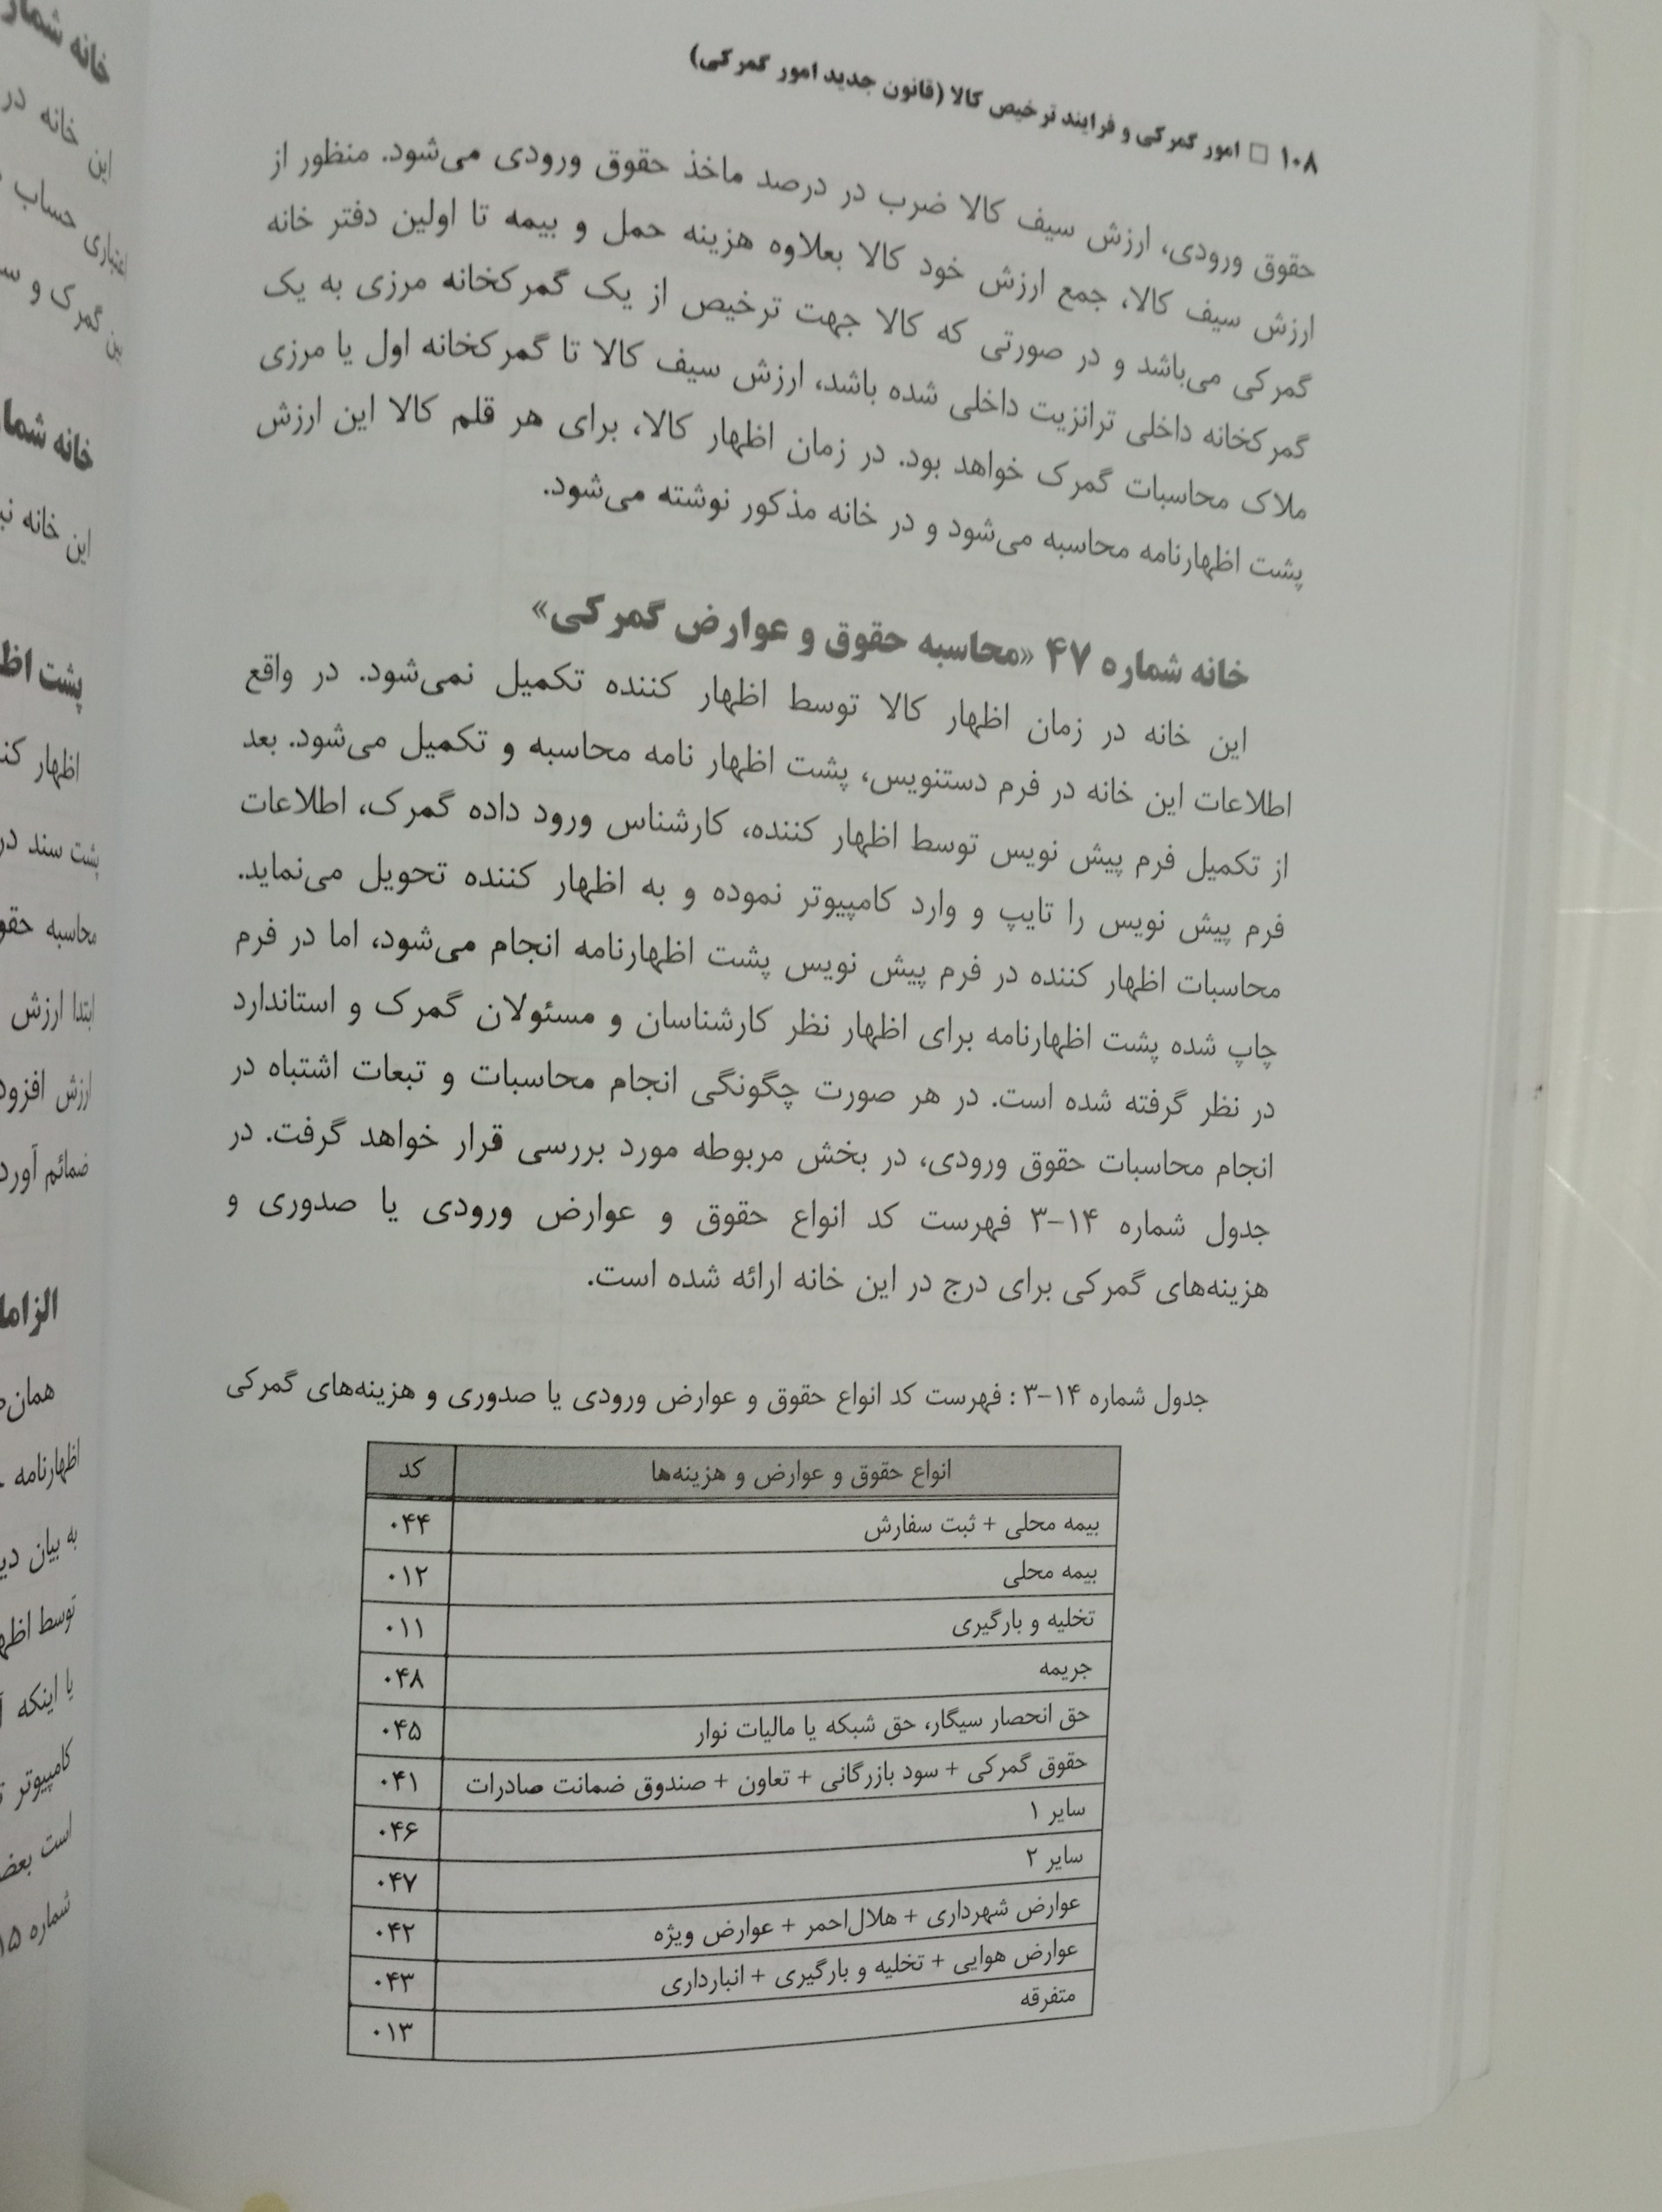 ۱۰۸ □ امور گمرکی و فرایند ترخیص کالا (قانون جدید امور گمرکی)
حقوق ورودی، ارزش سیف کالا ضرب در درصد ماخذ حقوق ورودی می‌شود. منظور از
ارزش سیف کالا، جمع ارزش خود کالا بعلاوه هزینه حمل و بیمه تا اولین دفتر خانه
گمرکی می‌باشد و در صورتی که کالا جهت ترخیص از یک گمرکخانه مرزی به یک
گمرکخانه داخلی ترانزیت داخلی شده باشد، ارزش سیف کالا تا گمرکخانه اول یا مرزی
ملاک محاسبات گمرک خواهد بود. در زمان اظهار کالا، برای هر قلم کالا این ارزش
پشت اظهارنامه محاسبه می‌شود و در خانه مذکور نوشته می‌شود.
خانه شماره ۴۷ «محاسبه حقوق و عوارض گمرکی»
این خانه در زمان اظهار کالا توسط اظهار کننده تکمیل نمی‌شود. در واقع
اطلاعات این خانه در فرم دستنویس، پشت اظهار نامه محاسبه و تکمیل می‌شود. بعد
از تکمیل فرم پیش نویس توسط اظهار کننده، کارشناس ورود داده گمرک، اطلاعات
فرم پیش نویس را تایپ و وارد کامپیوتر نموده و به اظهار کننده تحویل می‌نماید.
محاسبات اظهار کننده در فرم پیش نویس پشت اظهارنامه انجام می‌شود، اما در فرم
چاپ شده پشت اظهارنامه برای اظهار نظر کارشناسان و مسئولان گمرک و استاندارد
در نظر گرفته شده است. در هر صورت چگونگی انجام محاسبات و تبعات اشتباه در
انجام محاسبات حقوق ورودی، در بخش مربوطه مورد بررسی قرار خواهد گرفت. در
جدول شماره ۱۴-۳ فهرست کد انواع حقوق و عوارض ورودی یا صدوری و
هزینه‌های گمرکی برای درج در این خانه ارائه شده است.
جدول شماره ۱۴-۳ : فهرست کد انواع حقوق و عوارض ورودی یا صدوری و هزینه‌های گمرکی
انواع حقوق و عوارض و هزینه‌ها کد
بیمه محلی + ثبت سفارش ۰۴۴
بیمه محلی ۰۱۲
تخلیه و بارگیری ۰۱۱
جریمه ۰۴۸
حق انحصار سیگار، حق شبکه یا مالیات نوار ۰۴۵
حقوق گمرکی + سود بازرگانی + تعاون + صندوق ضمانت صادرات ۰۴۱
سایر ۱ ۰۴۶
سایر ۲ ۰۴۷
عوارض شهرداری + هلال‌احمر + عوارض ویژه ۰۴۲
عوارض هوایی + تخلیه و بارگیری + انبارداری ۰۴۳
متفرقه ۰۱۳
خانه شمار
این خانه در
اعتباری حساب
بین گمرک و س
خانه شما
این خانه
پشت اظ
اظهار کن
پشت سند در
محاسبه حقو
ابتدا ارزش
ارزش افزود
ضمائم آورد
الزاما
همان
اظهارنامه
به بیان دی
توسط اظه
یا اینکه
کامپیوتر
است بعض
شماره ۱۵